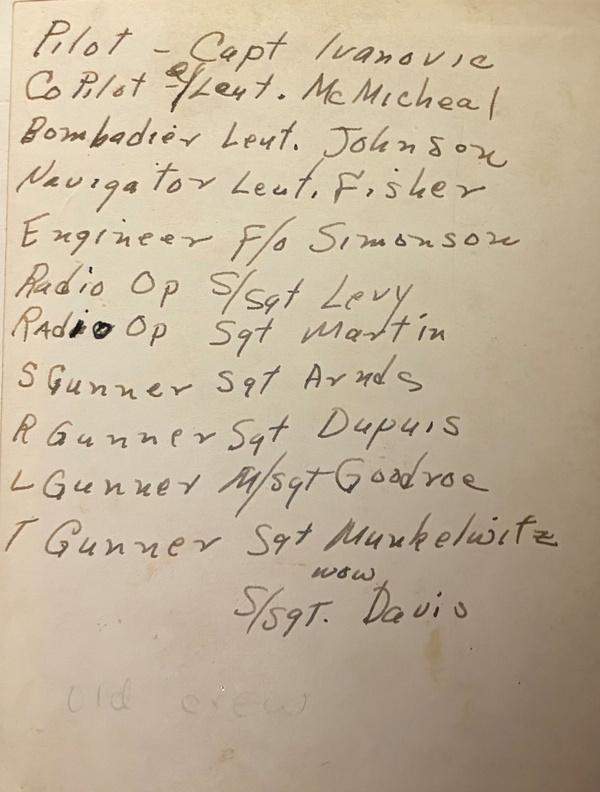 Pilot - Capt Ivanovic
Co Pilot 2/Leut. McMicheal
Bombadier Leut. Johnson
Navigator Leut. Fisher
Engineer F/o Simonson
Radio Op S/Sgt Levy
RAdio Op Sgt Martin
S Gunner Sgt Arnds
R Gunner Sgt Dupuis
L Gunner M/Sgt Goodroe
T Gunner Sgt Munkelwitz
wow
S/Sgt. Davis
Old crew